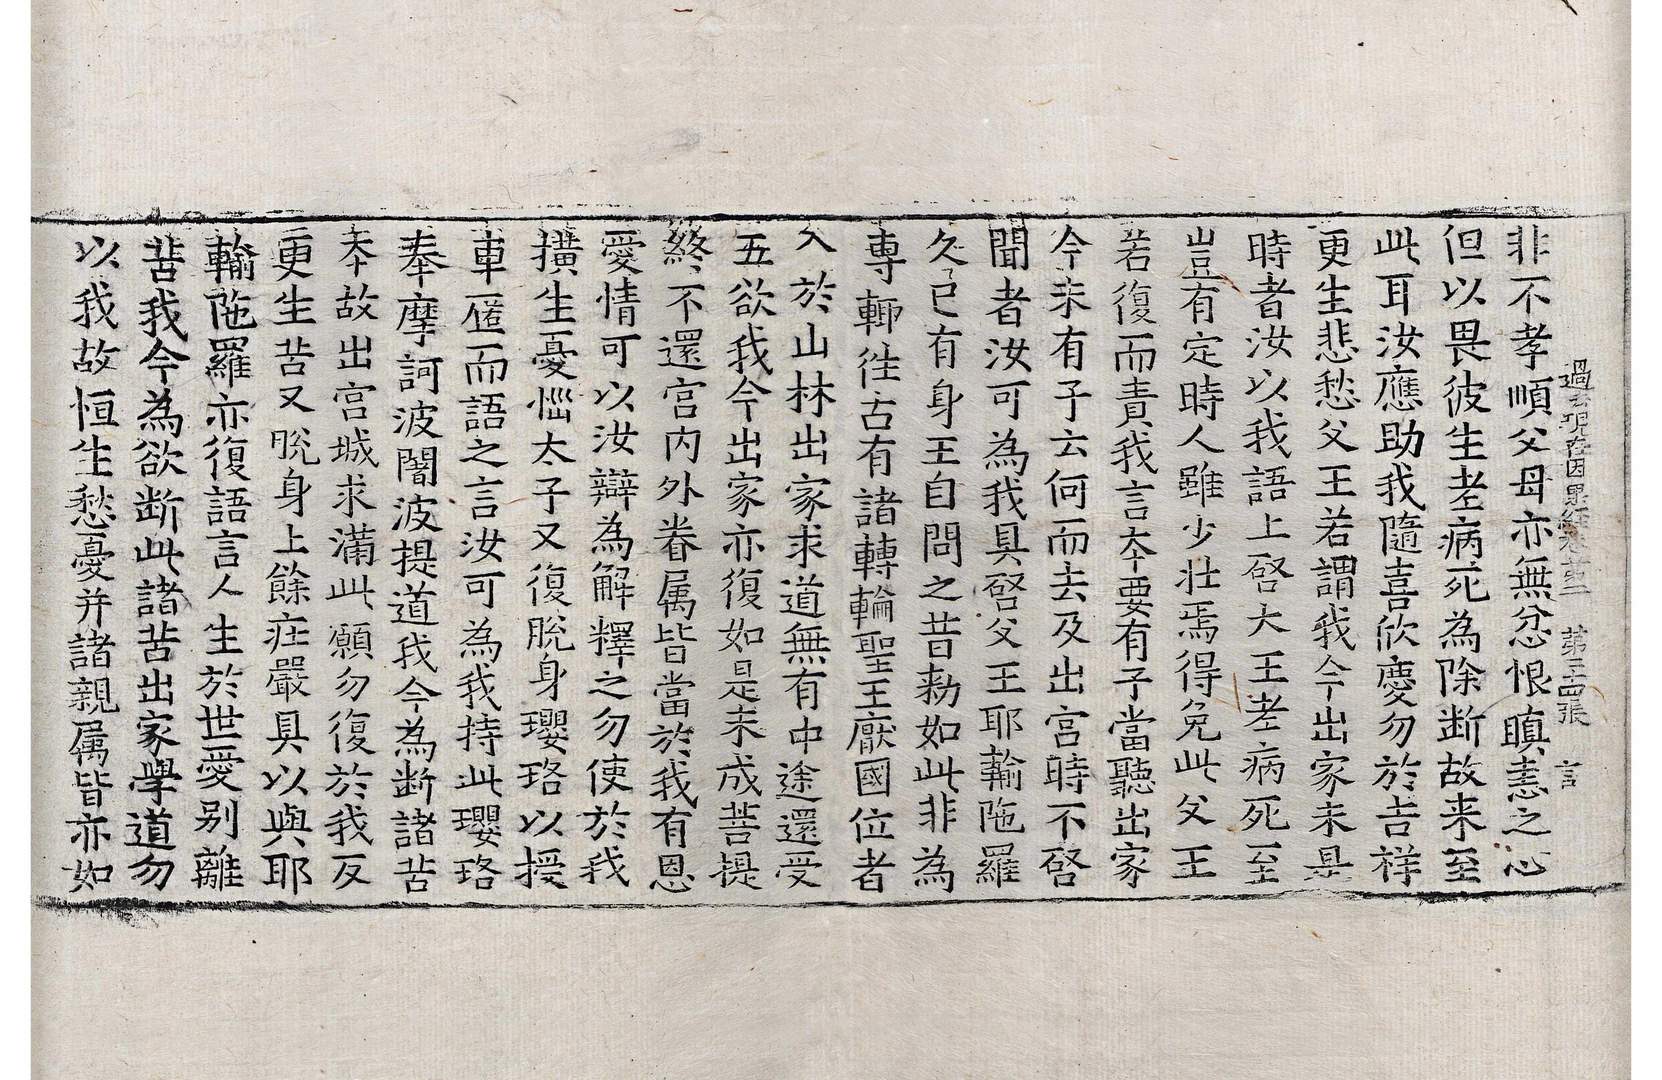 過去現在因果經卷第二 第二十四張 言
非不孝順父母亦無忿恨瞋恚之心
但以畏彼生老病死為除断故来至
此耳汝應助我隨喜欣慶勿於吉祥
更生悲愁父王若謂我今出家未是
時者汝以我語上啓大王老病死至
豈有定時人雖少壯焉得免此父王
若復而責我言本要有子當聽出家
今未有子云何而去及出宮時不啓
聞者汝可為我具啓父王耶輸陁羅
久已有身王自問之昔勑如此非為
專輒徃古有諸轉輪聖王厭國位者
入於山林出家求道無有中途還受
五欲我今出家亦復如是未成菩提
終不還宮內外眷属皆當於我有恩
愛情可以汝辯為解釋之勿使於我
撗生憂惱太子又復脫身瓔珞以授
車匿而語之言汝可為我持此瓔珞
奉摩訶波闍波提道我今為断諸苦
夲故出宮城求滿此願勿復於我反
更生苦又脫身上餘莊嚴具以與耶
輸陁羅亦復語言人生於世愛别離
苦我今為欲断此諸苦出家學道勿
以我故恒生愁憂并諸親属皆亦如